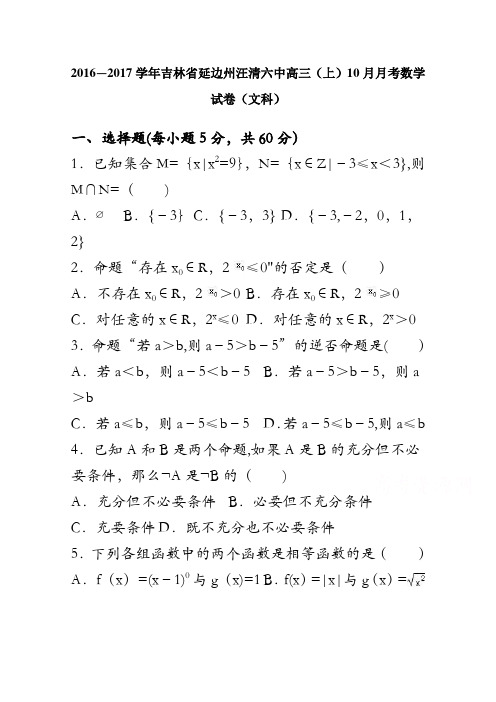 2016—2017学年吉林省延边州汪清六中高三（上）10月月考数学
试卷（文科）
一、选择题(每小题5分，共60分）
1．已知集合M=｛x|x²=9｝，N=｛x∈Z|﹣3≤x＜3},则
M∩N=（ ）
A．∅ B．{﹣3｝ C．{﹣3，3} D．{﹣3,﹣2，0，1，
2}
2．命题“存在x₀∈R，2 ˣ⁰≤0"的否定是（ ）
A．不存在x₀∈R，2 ˣ⁰＞0 B．存在x₀∈R，2 ˣ⁰≥0
C．对任意的x∈R，2ˣ≤0 D．对任意的x∈R，2ˣ＞0
3．命题“若a＞b,则a﹣5＞b﹣5”的逆否命题是( ）
A．若a＜b，则a﹣5＜b﹣5 B．若a﹣5＞b﹣5，则a
＞b
C．若a≤b，则a﹣5≤b﹣5 D．若a﹣5≤b﹣5,则a≤b
4．已知A和B是两个命题,如果A是B的充分但不必
要条件，那么¬A是¬B的（ )
A．充分但不必要条件 B．必要但不充分条件
C．充要条件 D．既不充分也不必要条件
5．下列各组函数中的两个函数是相等函数的是（ ）
A．f（x）=(x﹣1)⁰与g（x)=1 B．f(x）=|x|与g（x）=√x²